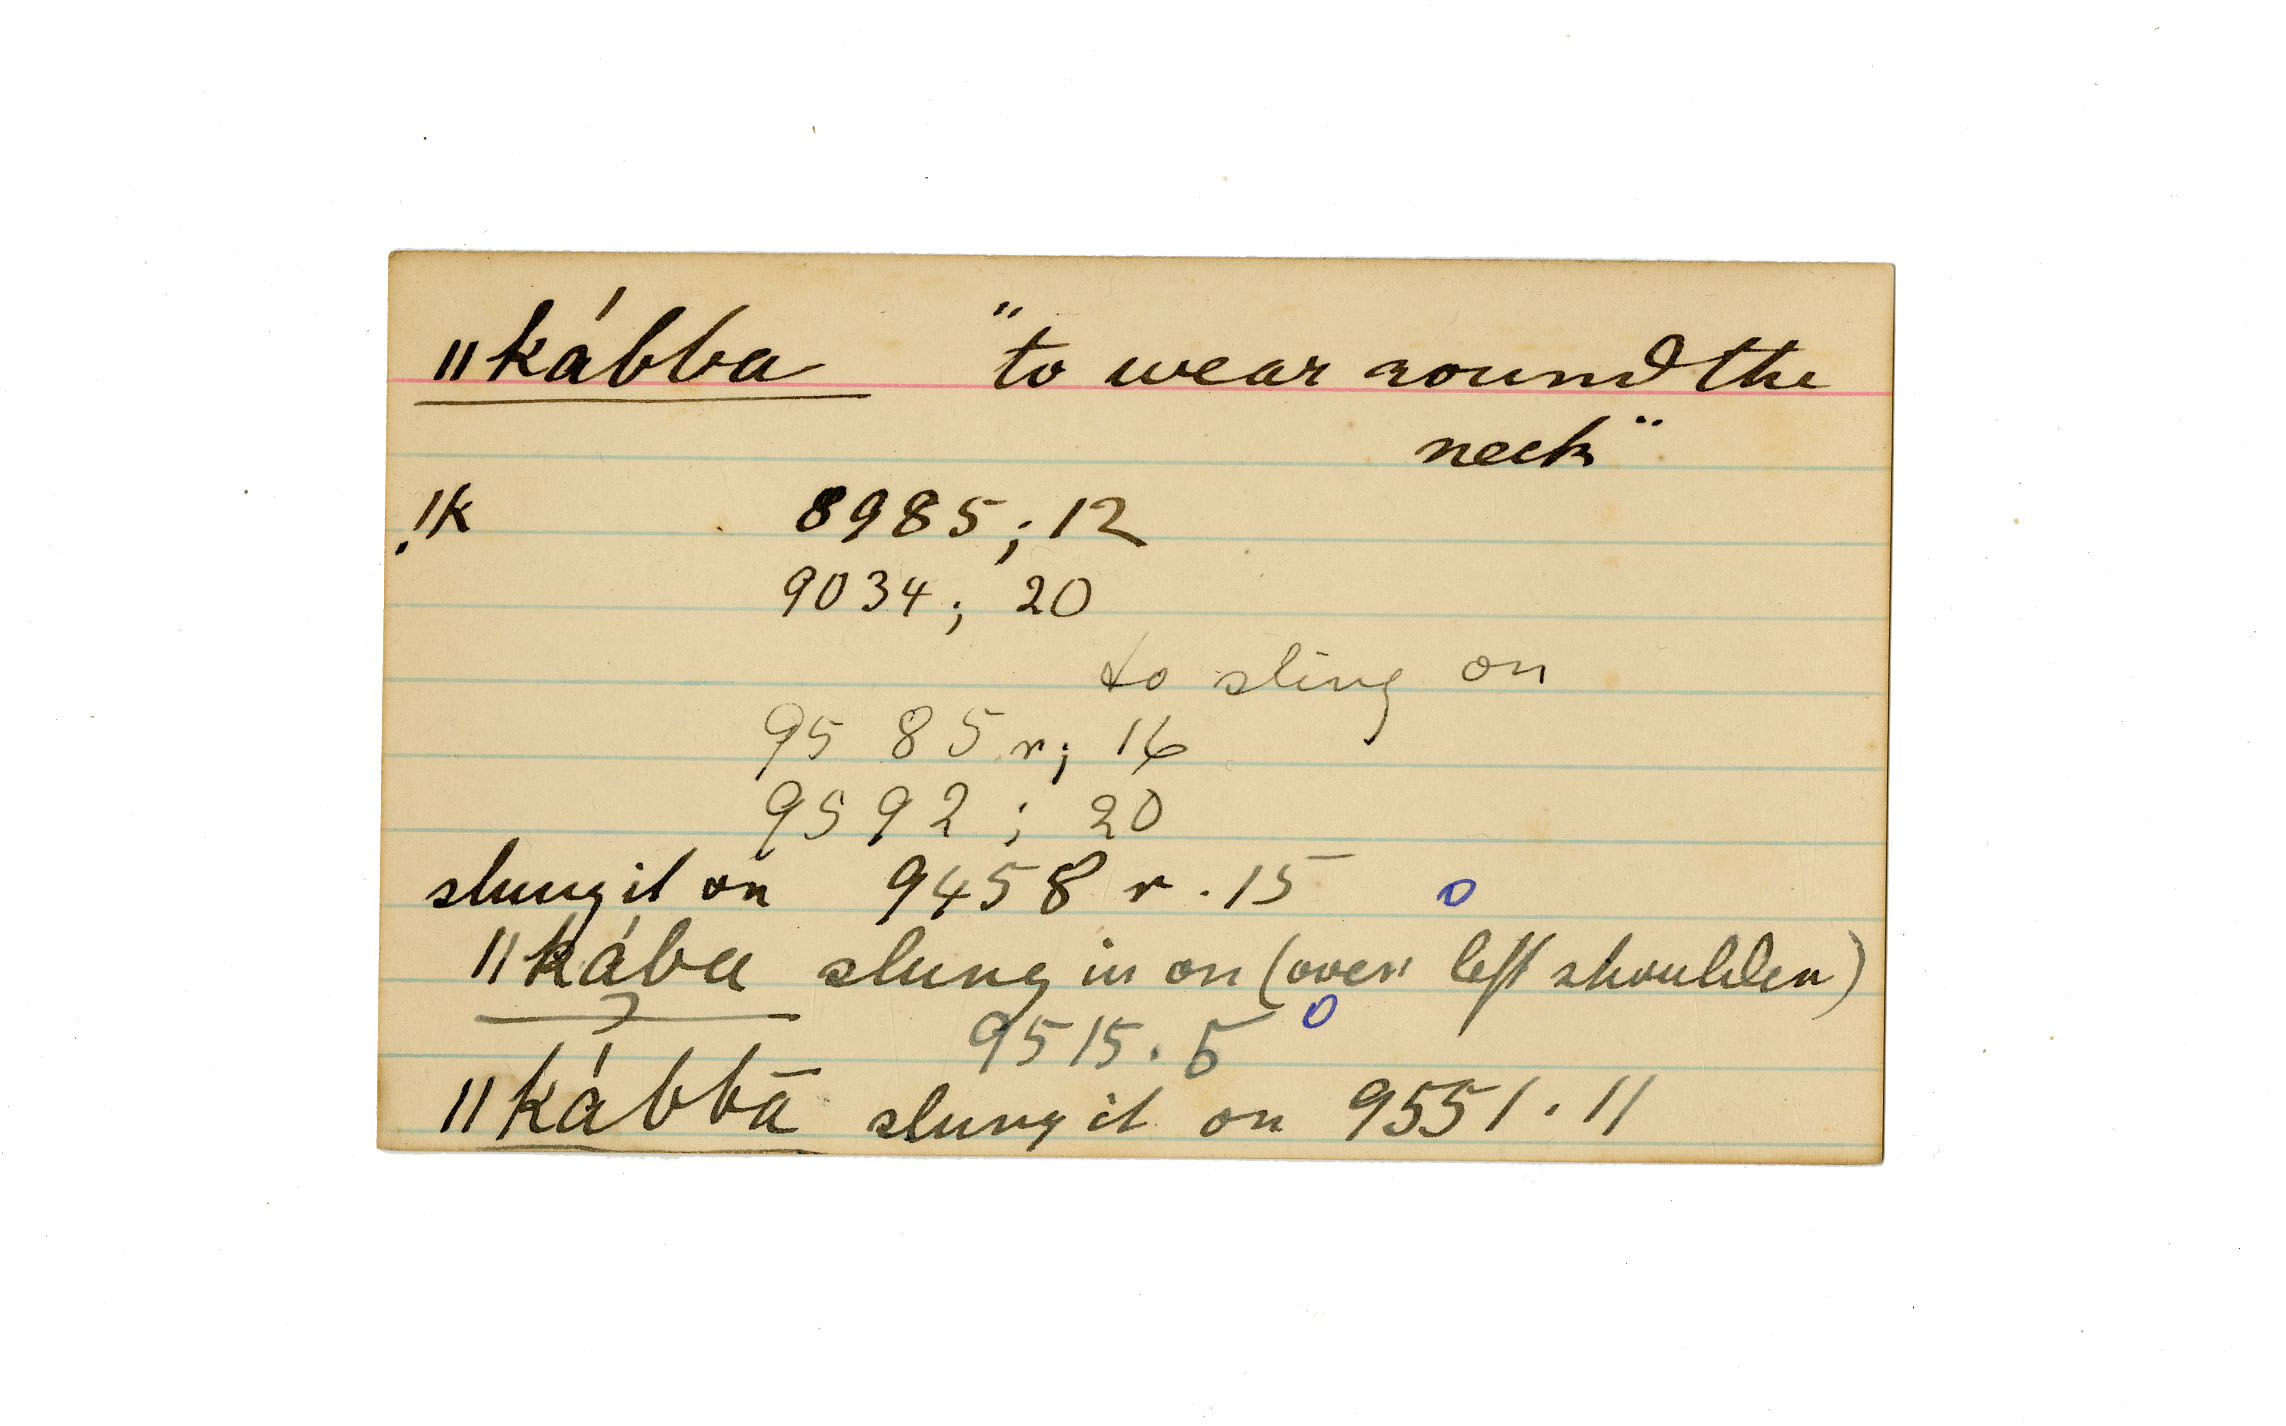 ǁkábba "to wear round the
neck"
!k 8985; 12
9034; 20
to sling on
9585 r; 16
9592; 20
slung it on 9458 r. 15 o
ǁkába slung in on (over left shoulder)
9515. 5 o
ǁkábbā slung it on 9551. 11